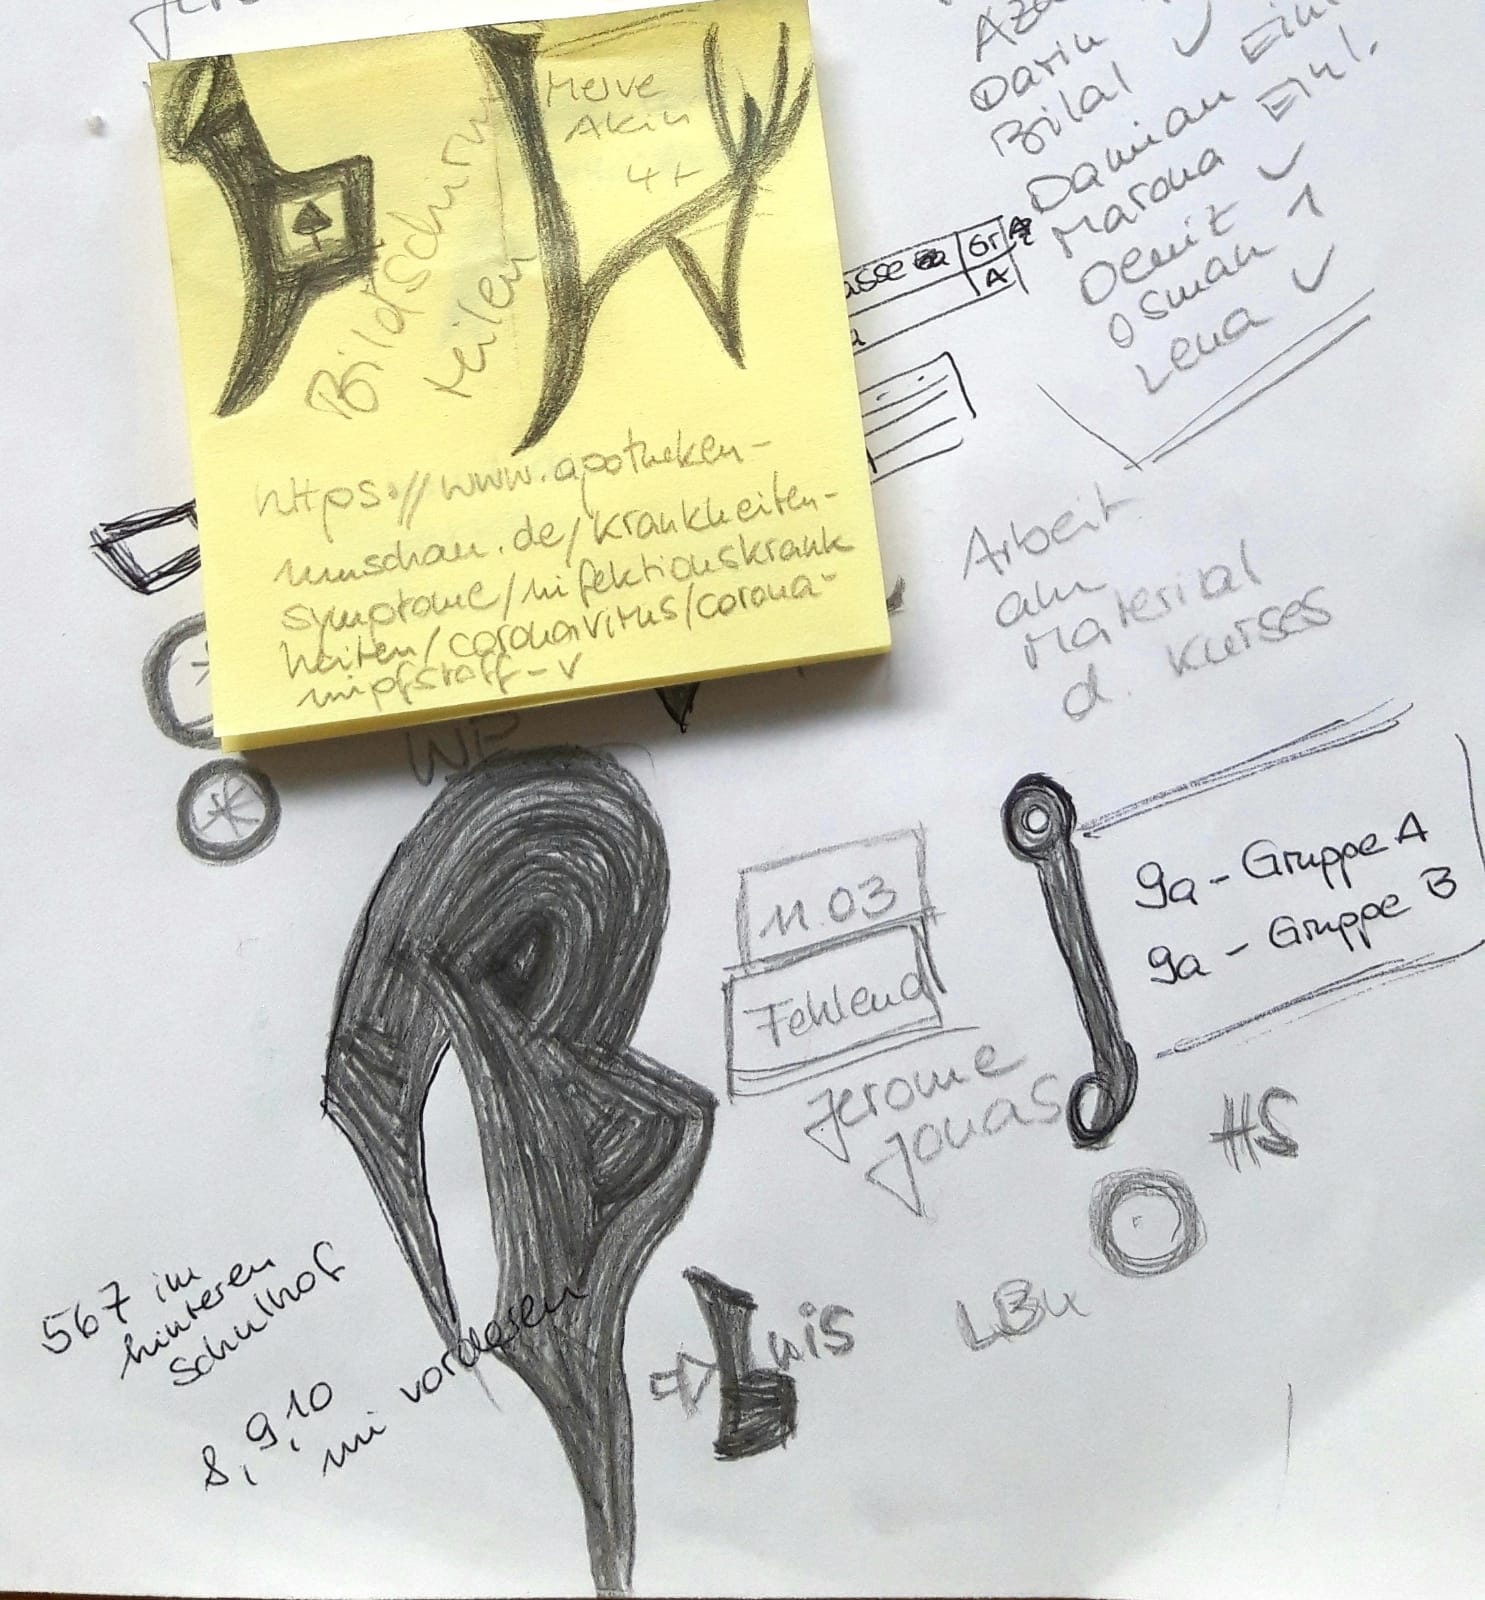 Merve
Akin
4+
Bildschirm
teilen
https://www.apotheken-
umschau.de/krankheiten-
symptome/infektionskrank
heiten/coronavirus/corona-
impfstoff-v
Darin
Bilal ✓
Damian Einl.
Marona Einl.
Denit ✓
Osman 1
Lena ✓
asse Gr
A
Arbeit
am
Material
d. Kurses
WP
11.03
Fehlend
Jerome
Jonas
9a - Gruppe A
9a - Gruppe B
HS
LBu
wis
567 im
hinteren
Schulhof
8, 9, 10
im vorderen